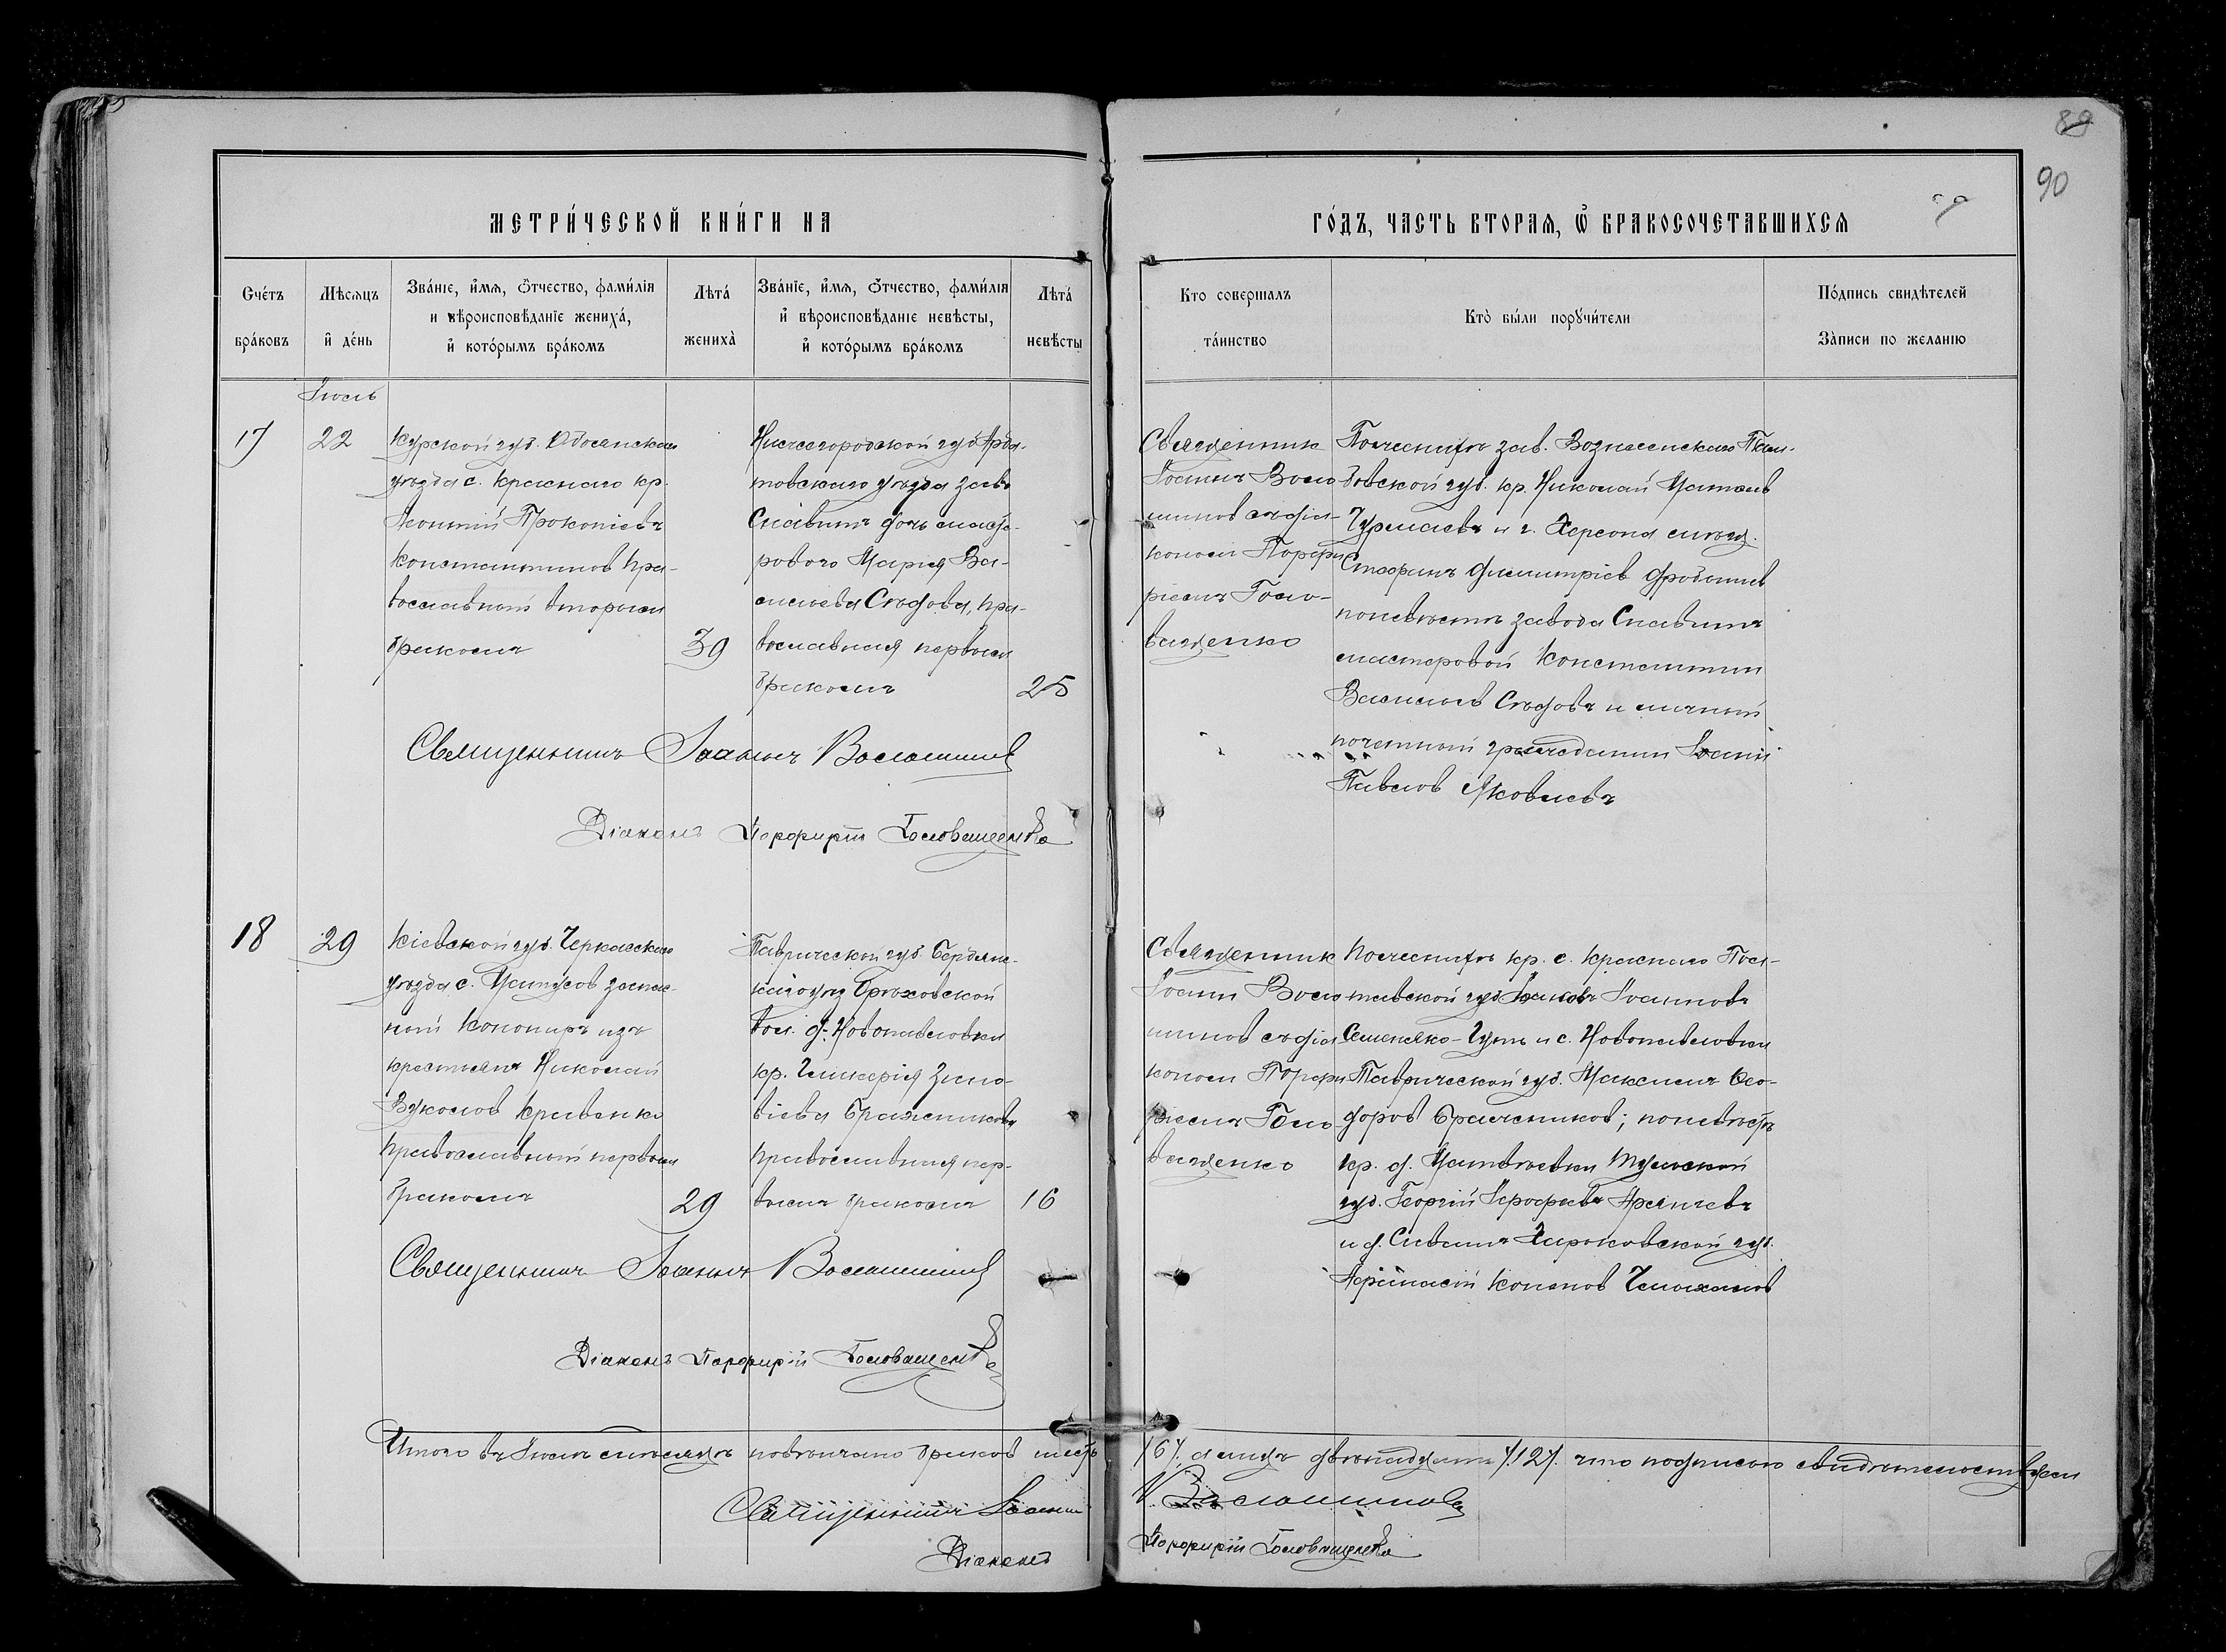 89
90
МЕТРИ́ЧЕСКОЙ КНИ́ГИ НА
ГО́ДЪ, ЧАСТЬ ВТОРАѦ, Ѡ҆ БРАКОСОЧЕТАВШИХСѦ
Сче́тъ
бра́ковъ
Мѣсѧцъ
и҆ де́нь
Зва́нїе, и҆́мѧ, ѻ҆́тчество, фами́лїѧ
и вѣроисповѣ́данїе жениха̀,
и҆ кото́рымъ бра́комъ
Лѣта́
жениха̀
Зва́нїе, и҆́мѧ, ѻ҆́тчество, фами́лїѧ
и҆ вѣроисповѣ́данїе невѣ́сты,
и҆ кото́рымъ бра́комъ
Лѣта́
невѣ́сты
Кто совершалъ
та́инство
Кто̀ бы́ли порꙋчи́тели
По́дпись свидѣ́телей
За̀писи по желанїю
Іюль
17
22
Курской губ. Обоянскаго
уѣзда с. Краснаго кр.
Прокопіевъ
Константинов Пра-
вославный вторым
бракомъ
39
Нижегородской губ Арда-
товскаго уѣзда зав.
дочь масте-
рового Марія Ва-
сильева Сѣдова, пра-
вославная первым
бракомъ
25
Священник
Іоаннъ Воло
шинов съ діа-
коном Порфи
ріемъ Голо-
ващенко
По женихѣ зав. Вознесенскаго Там-
бовской губ. кр. Николай Матвѣев
и г. Херсона мѣщ.
Димитріев
по невѣстѣ завода
мастеровой Константин
Васильев Сѣдовъ и личный
почетный гражданин Іоанн
Павлов Яковлевъ
Священникъ Іоаннъ Волошинов
Діаконъ Порфирій Головащенко
18
29
Кіевской губ. Черкасскаго
уѣзда с. запас-
ный изъ
крестьянъ Николай
Вуколов Кривенко
православный первым
бракомъ
29
Таврической губ. Бердянс-
каго уѣз
вол. д. Новопавловки
кр. Гликерія Зино-
віева Бражникова
православная пер-
вымъ бракомъ
16
Священник
Іоанн Воло
шинов съ діа
коном Порфи
ріемъ Голо
ващенко
По женихѣ кр. с. Краснаго Пол-
тавской губ Іоанновъ
и с. Новопавловки
Таврической губ. Максимъ Ѳео-
доров Бражников; по невѣстѣ
кр. д. Матвѣевки Тульской
губ. Георгій
и д. Харьковской губ.
Афанасій Кононов
Священникъ Іоаннъ Волошинов
Діаконъ Порфирій Головащенко
Итого въ Іюлѣ мѣсяцѣ повѣнчано браков шесть /6/. а лицъ двѣнадцать /12/. что подписью свидѣтельствуем
Священникъ Іоанн Волошинов
Діаконъ Порфирій Головащенко